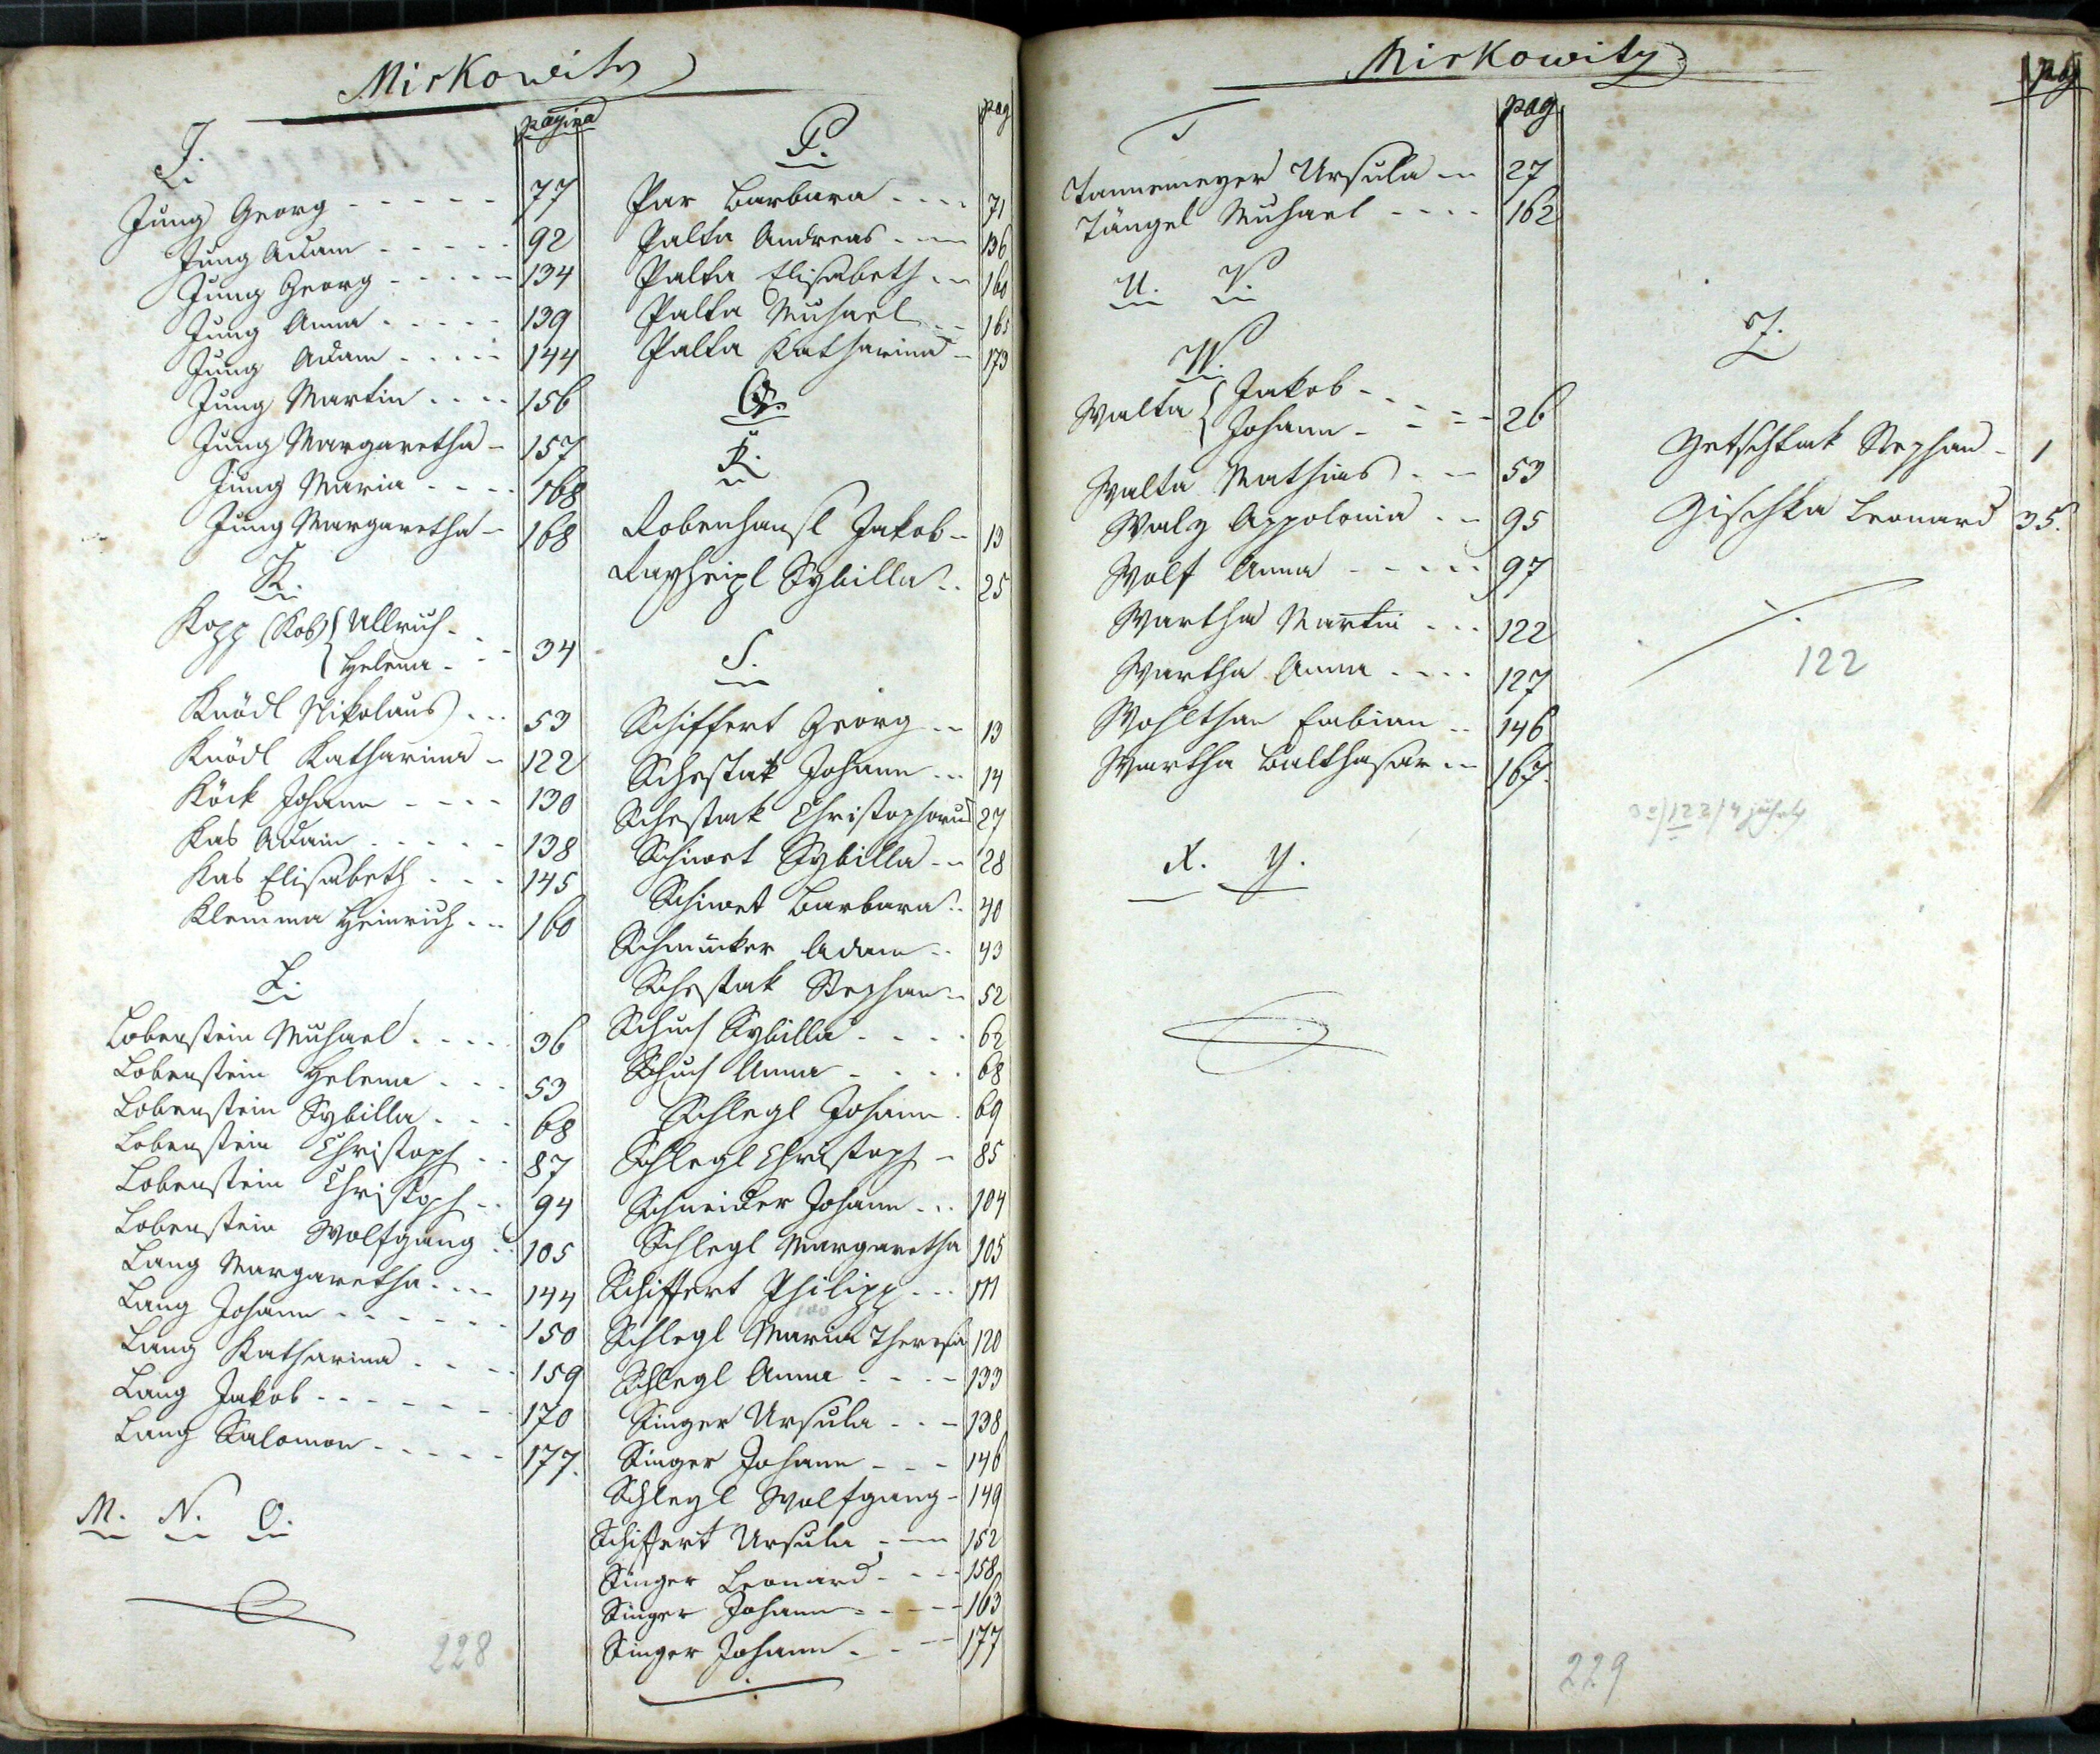 Mirkowitz
pagina
J.
Jung Georg - - - - - 77
Jung Adam - - - - - 92
Jung Georg - - - - - 134
Jung Anna - - - - - 139
Jung Adam - - - - 144
Jung Martin - - - - 156
Jung Margaretha - 157
Jung Maria - - - - 168
Jung Margaretha - 168
K.
Kopp (Kob) { Ullrich - -
Helena - - - 34
Knödl Nikolaus - - - 53
Knödl Katharina - 122
Köck Johann - - - - 130
Kas Adam - - - - - 138
Kas Elisabeth - - - 145
Klemma Heinrich - - 160
L.
Lobenstein Michael - - - - 36
Lobenstein Helena - - - 53
Lobenstein Sybilla - - - 68
Lobenstein Christoph - - 87
Lobenstein Christoph - - 94
Lobenstein Wolfgang - - 105
Lang Margaretha - - - - 144
Lang Johann - - - - - - 150
Lang Katharina - - - - 159
Lang Jakob - - - - - - 170
Lang Salomon - - - - - 177.
M. N. O.
228
pag
P.
Par Barbara - - - - 71
Palta Andreas - - - 136
Palta Elisabeth - - 160
Palta Michael - - 165
Palta Katharina - 173
Q.
R.
Robenhansl Jakob - - 13
Sybilla - - 25
S.
Schiffert Georg - - 13
Schestak Johann - - - 14
Schestak Christophorus 27
Schinet Sybilla - - 28
Schinet Barbara - - 40
Schmucker Adam - - 43
Schestak Stephan - - 52
Schuch Sybilla - - - - 62
Schuch Anna - - - - 68
Schlegl Johann - 69
Schlegl Christoph - 85
Schneider Johann - - - 104
Schlegl Margaretha 105
Schiffert Philipp - - - 111
100
Schlegl Maria Theresia 120
Schlegl Anna - - - - 133
Singer Ursula - - - 138
Singer Johann - - - 146
Schlegl Wolfgang - 149
Schiffert Ursula - - - 152
Singer Leonard - - - - 158
Singer Johann - - - - 163
Singer Johann - - - 177
Mirkowitz
pag
T
Tannemeyer Ursula - - 27
Tängel Michael - - - - 162
U. V.
W.
Walta { Jakob - - - - -
Johann - - - - 26
Walta Mathias - - - 53
Walz Appolonia - - 95
Wolf Anna - - - - - 97
Wartha Martin - - - 122
Wartha Anna - - - - 127
Wohlthan Fabian - - 146
Wartha Balthasar - - 167.
X. Y.
pag
Z.
Zetschkak Stephan - 1
Zischka Leonard 35.
122
229